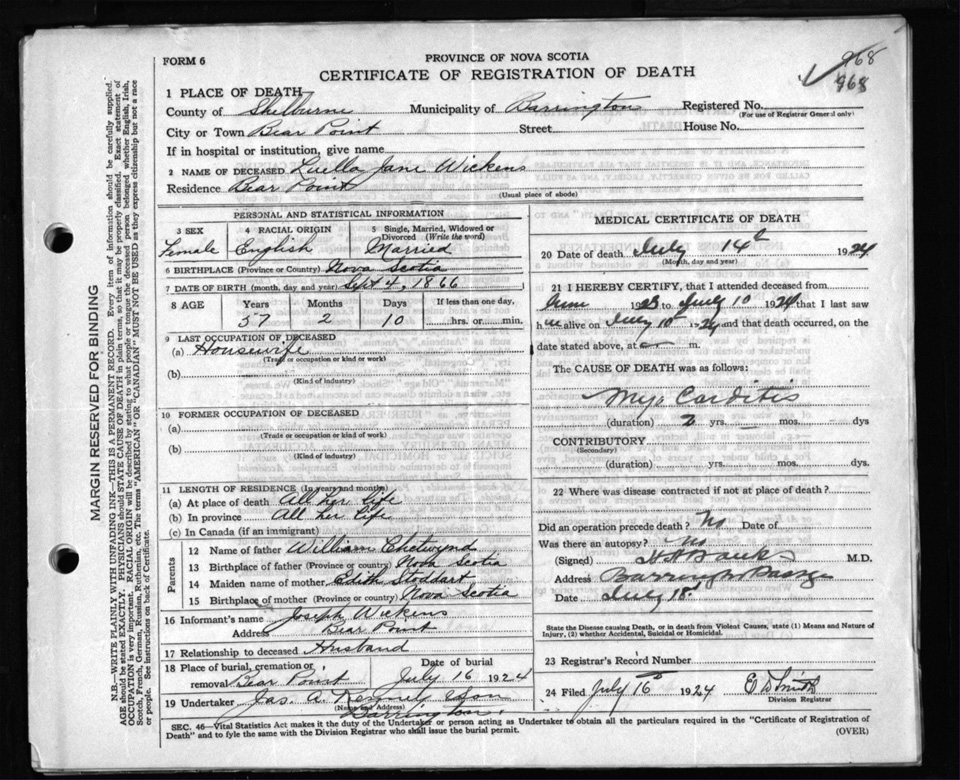 FORM 6
PROVINCE OF NOVA SCOTIA
CERTIFICATE OF REGISTRATION OF DEATH
968
968
1 PLACE OF DEATH
County of Shelburne Municipality of Barrington Registered No.
(For use of Registrar General only)
City or Town Bear Point Street House No.
If in hospital or institution, give name
2 NAME OF DECEASED Luella Jane Wickens
Residence Bear Point
(Usual place of abode)
PERSONAL AND STATISTICAL INFORMATION
3 SEX 4 RACIAL ORIGIN 5 Single, Married, Widowed or Divorced (Write the word)
Female English Married
6 BIRTHPLACE (Province or Country) Nova Scotia
7 DATE OF BIRTH (month, day and year) Sept 4, 1866
8 AGE Years Months Days If less than one day,
57 2 10 hrs. or min.
9 LAST OCCUPATION OF DECEASED
(a) Housewife
(Trade or occupation or kind or work)
(b)
(Kind of industry)
10 FORMER OCCUPATION OF DECEASED
(a)
(Trade or occupation or kind of work)
(b)
(Kind of industry)
11 LENGTH OF RESIDENCE (In years and months)
(a) At place of death All her life
(b) In province All her life
(c) In Canada (if an immigrant)
Parents
12 Name of father William Chetwynd
13 Birthplace of father (Province or country) Nova Scotia
14 Maiden name of mother Edith Stoddart
15 Birthplace of mother (Province or country) Nova Scotia
16 Informant's name Joseph Wickens
Address Bear Point
17 Relationship to deceased Husband
18 Place of burial, cremation or removal Bear Point Date of burial July 16 1924
19 Undertaker Jas. A. Kenney & Son
(Name and Address)
Barrington.
MEDICAL CERTIFICATE OF DEATH
20 Date of death July 14 1924
(Month, day and year)
21 I HEREBY CERTIFY, that I attended deceased from
June 1923 to July 10 1924 that I last saw
h alive on July 10 1924 and that death occurred, on
the date stated above, at m.
The CAUSE OF DEATH was as follows:
Myo Carditis
(duration) 2 yrs. mos. dys
CONTRIBUTORY
(Secondary)
(duration) yrs. mos. dys.
22 Where was disease contracted if not at place of death?
Did an operation precede death? No Date of
Was there an autopsy? No
(Signed) Banks M.D.
Address Barrington Passage
Date July 18
State the Disease causing Death, or in death from Violent Causes, state (1) Means and Nature of Injury, (2) whether Accidental, Suicidal or Homicidal.
23 Registrar's Record Number
24 Filed July 16 1924 E D Smith
Division Registrar
SEC. 46—Vital Statistics Act makes it the duty of the Undertaker or person acting as Undertaker to obtain all the particulars required in the "Certificate of Registration of
Death" and to fyle the same with the Division Registrar who shall issue the burial permit. (OVER)
MARGIN RESERVED FOR BINDING
N.B.—WRITE PLAINLY WITH UNFADING INK—THIS IS A PERMANENT RECORD. Every item of information should be carefully supplied.
AGE should be stated EXACTLY. PHYSICIANS should STATE CAUSE OF DEATH in plain terms, so that it may be properly classified. Exact statement of
OCCUPATION is very important. RACIAL ORIGIN will be described by stating to what people or tongue the deceased person belonged whether English, Irish,
Scotch, French, German, Russian, Ruthenian, etc. The terms "AMERICAN" OR "CANADIAN" MUST NOT BE USED as they express citizenship but not a race
or people. See instructions on back of Certificate.